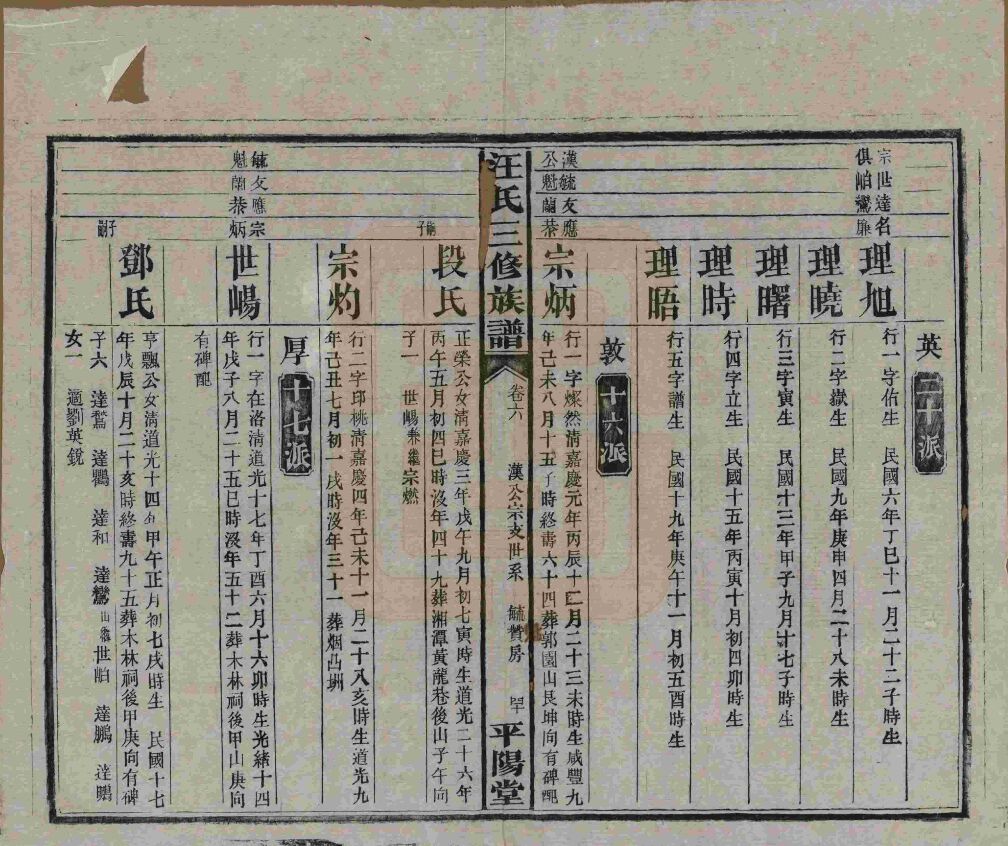 英
二十派
宗世達名
俱帕鸞廉
理旭
行一字佑生 民國六年丁巳十一月二十二子時生
理曉
行二字嶽生 民國九年庚申四月二十八未時生
理曙
行三字寅生 民國十三年甲子九月十七子時生
理時
行四字立生 民國十五年丙寅十月初四卯時生
理晤
行五字譜生 民國十九年庚午十一月初五酉時生
敦
十六派
漢毓友應
公魁蘭恭
宗炳
行一字燦然淸嘉慶元年丙辰十二月二十三未時生咸豐九
年己未八月十五子時終壽六十四葬郭園山艮坤向有碑配
汪氏三修族譜
卷六
漢公宗支世系 毓贊房
平陽堂
段氏
正榮公女淸嘉慶三年戊午九月初七寅時生道光二十六年
丙午五月初四巳時沒年四十九葬湘潭黃龍巷後山子午向
子一 世暘兼繼宗燃
嗣子
宗灼
行二字邱桃淸嘉慶四年己未十一月二十八亥時生道光九
年己丑七月初一戌時沒年三十一葬烟凸坤
厚
十七派
毓友應宗
魁蘭恭炳
世暘
行一字在洛淸道光十七年丁酉六月十六卯時生光緖十四
年戊子八月二十五巳時沒年五十二葬木林祠後甲山庚向
有碑配
子嗣
鄧氏
亨飄公女淸道光十四年甲午正月初七戌時生 民國十七
年戊辰十月二十亥時終壽九十五葬木林祠後甲庚向有碑
子六 達鶩 達鸜 達和 達鸞出繼世帕 達鵬 達鵰
女一 適劉英銳